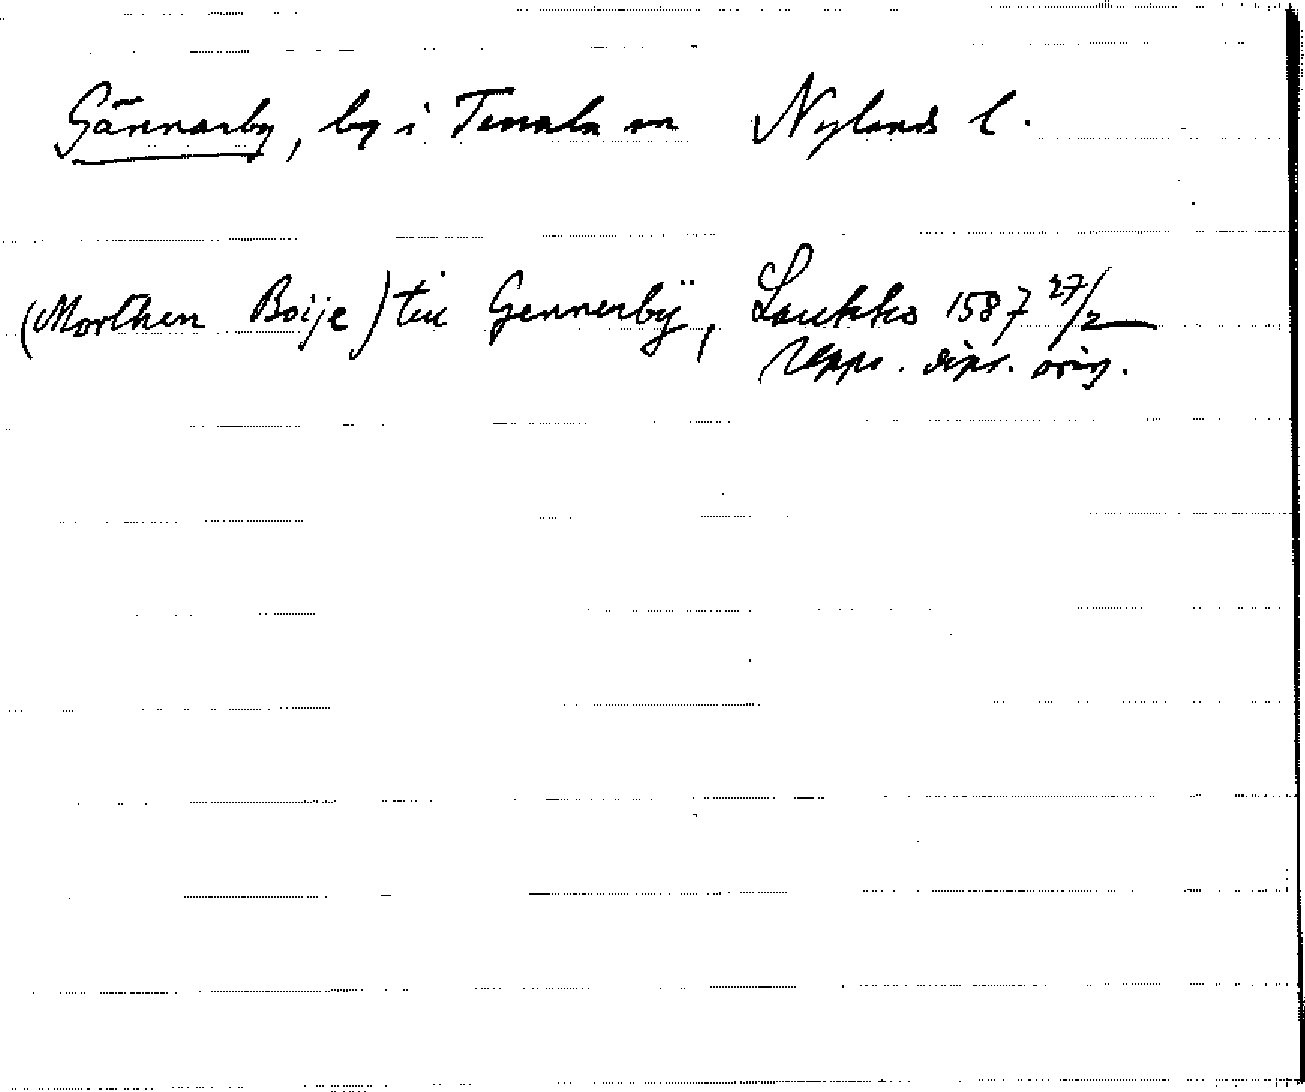 Gännarby, by i Tenala sn Nylands l.
(Morthen Boije) till Gennerbÿ, Laukko 1587 27/2
Rapps. dipl. orig.